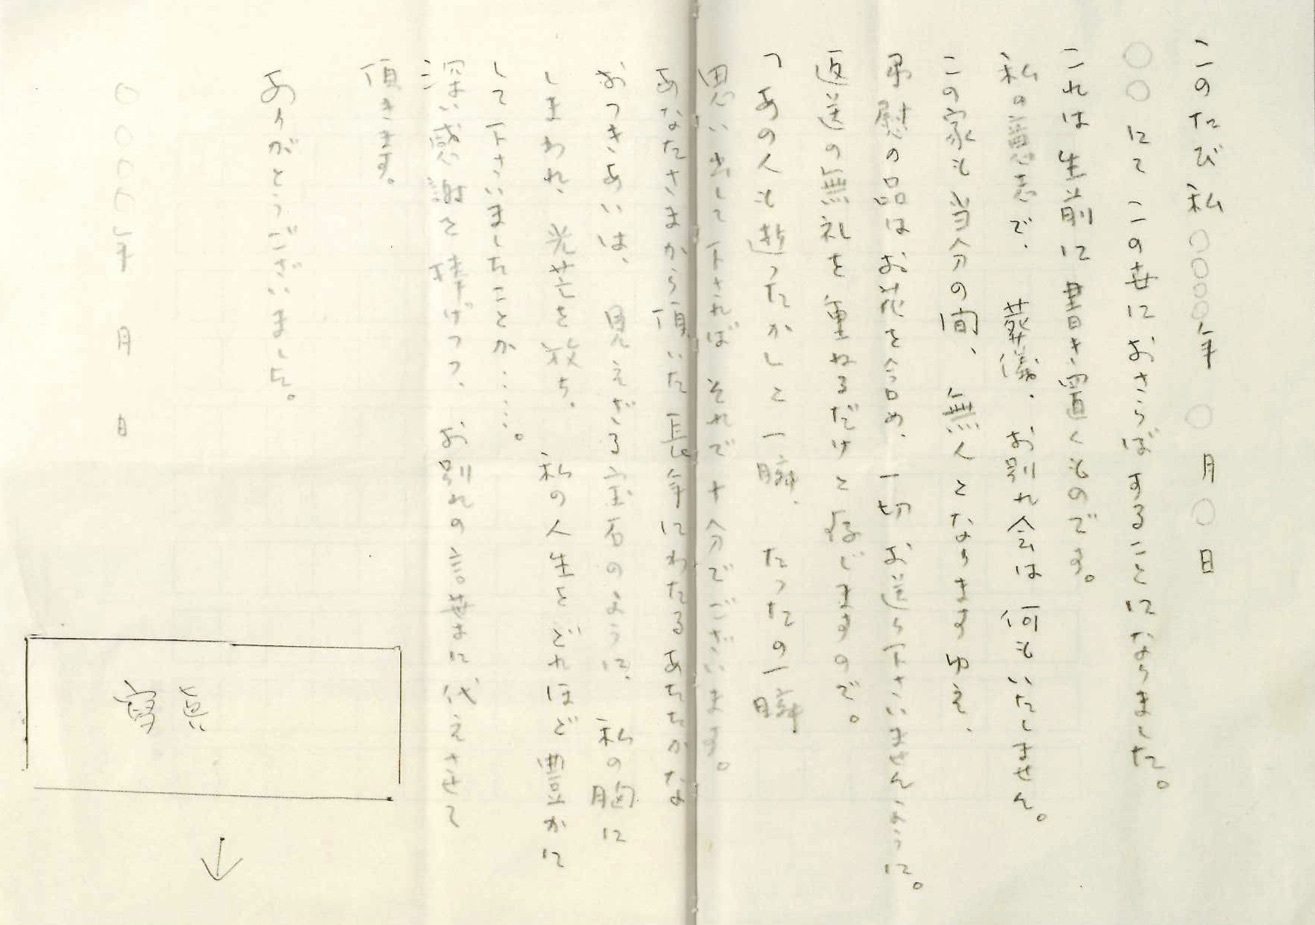 このたび私〇〇〇〇年〇月〇日
〇〇にてこの世におさらばすることになりました。
これは生前に書き置くものです。
私の意志で、葬儀、お別れ会は何もいたしません。
この家も当分の間、無人となりますゆえ、
弔慰の品はお花を含め、一切お送り下さいませんように。
返送の無礼を重ねるだけと存じますので。
「あの人も逝ったか」と一瞬、たったの一瞬
思い出して下さればそれで十分でございます。
あなたさまから頂いた長年にわたるあたたかな
おつきあいは、見えざる宝石のように、私の胸に
しまわれ、光芒を放ち、私の人生をどれほど豊かに
して下さいましたことか……。
深い感謝を捧げつつ、お別れの言葉に代えさせて
頂きます。
ありがとうございました。
〇〇〇〇年 月 日
寫真
↓